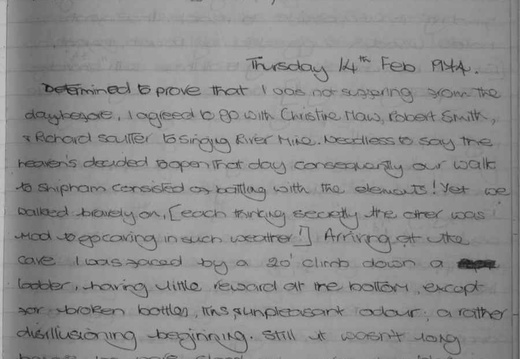 Thursday 14th Feb 1974.
Determined to prove that I was not suffering from the
day before, I agreed to go with Christine Maw, Robert Smith,
& Richard to Singing River Mine. Needless to say the
heavens decided to open that day consequently our walk
to Shipham consisted of battling with the elements! Yet we
walked bravely on, [each thinking secretly the other was
mad to go caving in such weather!] Arriving at the
cave I was faced by a 20' climb down a
ladder, having little reward at the bottom, except
for broken bottles, tins & unpleasant odour, a rather
disillusioning beginning. Still it wasn't long